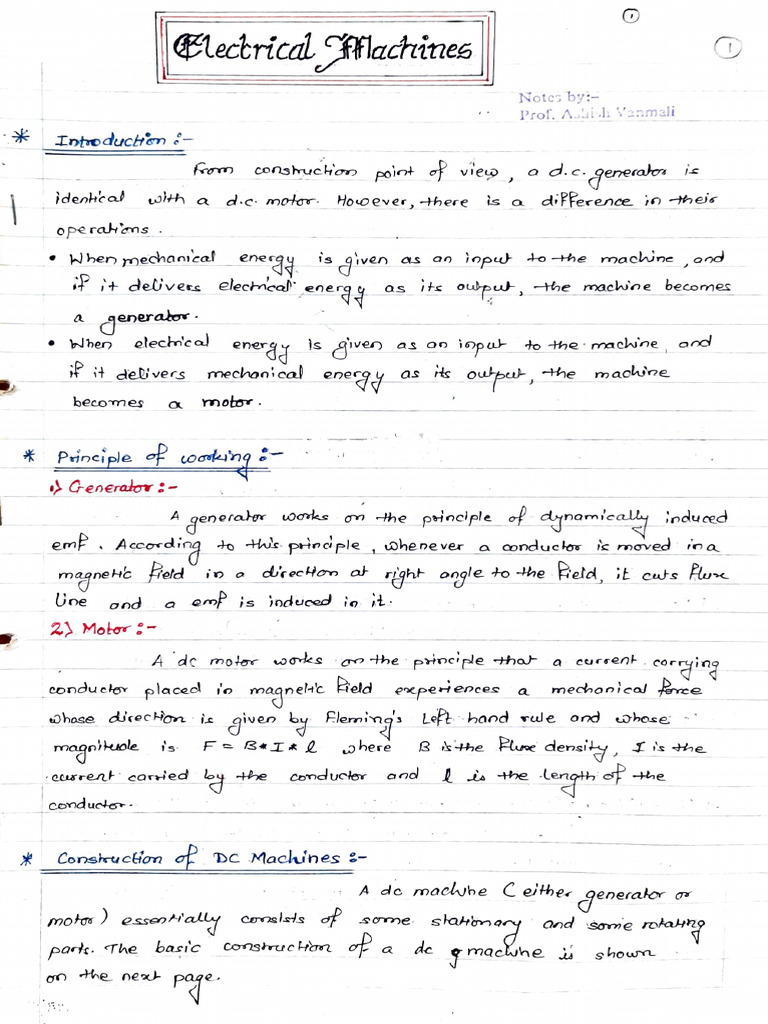 1
1
Electrical Machines
Notes by:-
Prof. Ashish Vanmali
* Introduction :-
From construction point of view, a d.c. generator is
identical with a d.c. motor. However, there is a difference in their
operations.
• When mechanical energy is given as an input to the machine, and
if it delivers electrical energy as its output, the machine becomes
a generator.
• When electrical energy is given as an input to the machine, and
if it delivers mechanical energy as its output, the machine
becomes a motor.
* Principle of working :-
1) Generator :-
A generator works on the principle of dynamically induced
emf. According to this principle, whenever a conductor is moved in a
magnetic field in a direction at right angle to the field, it cuts flux
line and a emf is induced in it.
2) Motor :-
A dc motor works on the principle that a current carrying
conductor placed in magnetic field experiences a mechanical force
whose direction is given by Fleming's Left hand rule and whose
magnitude is F = B*I*l where B is the flux density, I is the
current carried by the conductor and l is the length of the
conductor.
* Construction of DC Machines :-
A dc machine (either generator or
motor) essentially consists of some stationary and some rotating
parts. The basic construction of a dc machine is shown
on the next page.